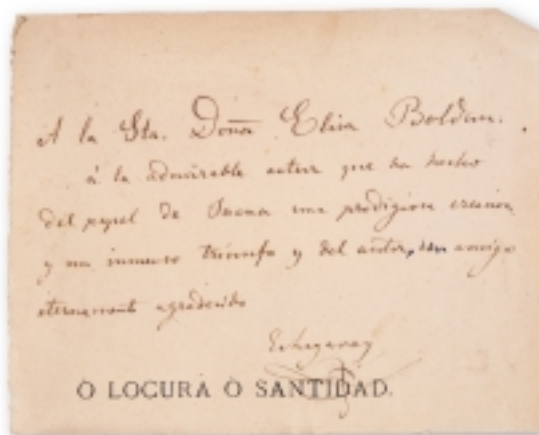 A la Sta. Doña Elisa Boldun.
á la admirable actriz que ha hecho
del papel de Juana una prodigiosa creacion
y un inmenso triunfo y del autor, un amigo
eternamente agradecido
Echegaray
O LOCURA O SANTIDAD.